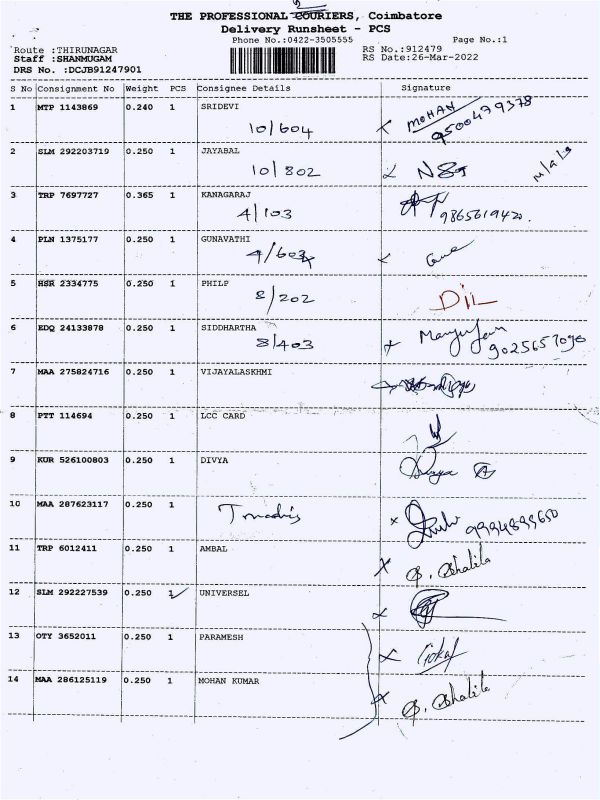 THE PROFESSIONAL COURIERS, Coimbatore
Delivery Runsheet - PCS
Phone No.:0422-3505555 Page No.:1
Route :THIRUNAGAR RS No.:912479
Staff :SHANMUGAM RS Date:26-Mar-2022
DRS No. :DCJB91247901
S No Consignment No Weight PCS Consignee Details Signature
1 MTP 1143869 0.240 1 SRIDEVI MOHAN
10/604 9500479378
2 SLM 292203719 0.250 1 JAYABAL
10/802
3 TRP 7697727 0.365 1 KANAGARAJ
4/103 9865619420.
4 PLN 1375177 0.250 1 GUNAVATHI
5 HSR 2334775 0.250 1 PHILP
8/202 DIL
6 EDQ 24133878 0.250 1 SIDDHARTHA
8/403
7 MAA 275824716 0.250 1 VIJAYALASKHMI
8 PTT 114694 0.250 1 LCC CARD
9 KUR 526100803 0.250 1 DIVYA
Divya
10 MAA 287623117 0.250 1
11 TRP 6012411 0.250 1 AMBAL
12 SLM 292227539 0.250 1 UNIVERSEL
13 OTY 3652011 0.250 1 PARAMESH
Gokul
14 MAA 286125119 0.250 1 MOHAN KUMAR